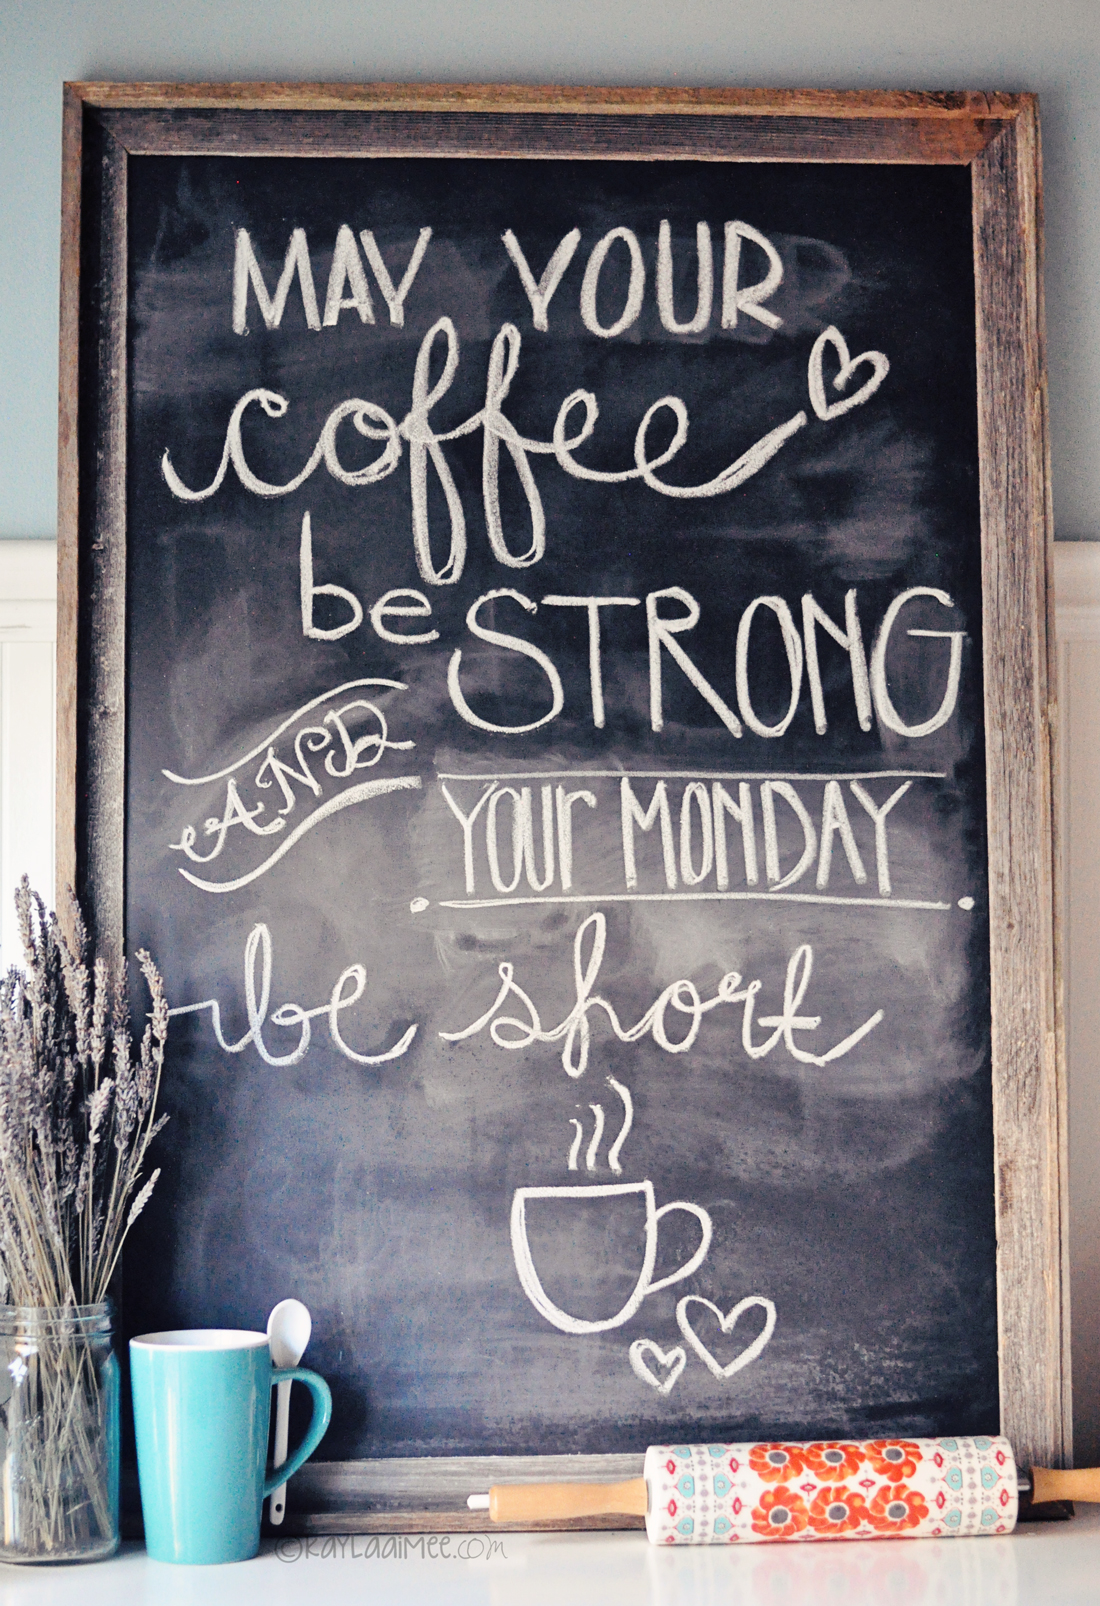 MAY YOUR
coffee
be STRONG
AND
Your MONDAY
be short
©KAYLAAIMEE.COM